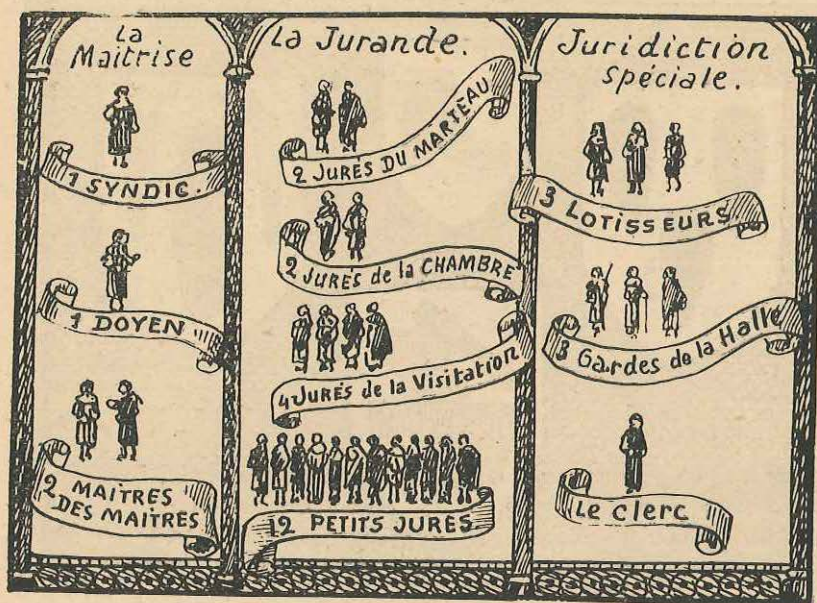 La
Maitrise
1 SYNDIC.
1 DOYEN
2 MAITRES
DES MAITRES
La Jurande.
2 JURÉS DU MARTEAU
2 JURÉS de la CHAMBRE
4 JURÉS de la Visitation
12 PETITS JURÉS
Juridiction
spéciale.
3 LOTISSEURS
3 Gardes de la Halle
Le Clerc